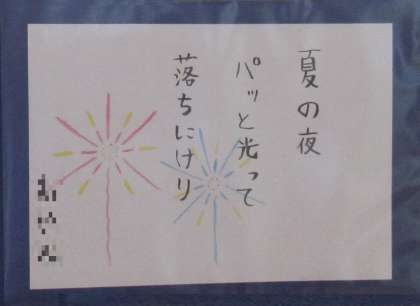 夏の夜
パッと光って
落ちにけり